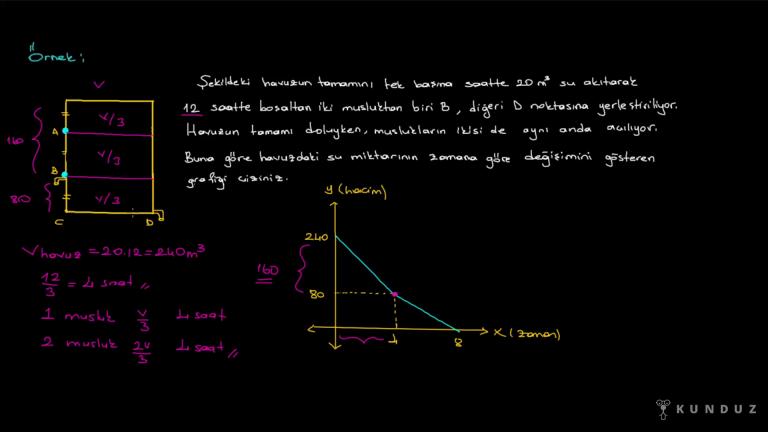 Örnek:
Şekildeki havuzun tamamını tek başına saatte 20 m³ su akıtarak
12 saatte boşaltan iki musluktan biri B, diğeri D noktasına yerleştiriliyor.
Havuzun tamamı doluyken, muslukların ikisi de aynı anda açılıyor.
Buna göre havuzdaki su miktarının zamana göre değişimini gösteren
grafiği çiziniz.
V
V/3
A
160
V/3
B
80
V/3
C
D
V havuz = 20.12 = 240 m³
12/3 = 4 saat //
1 musluk V/3 4 saat
2 musluk 2V/3 4 saat //
y (hacim)
240
160
80
4
8
x (zaman)
KUNDUZ